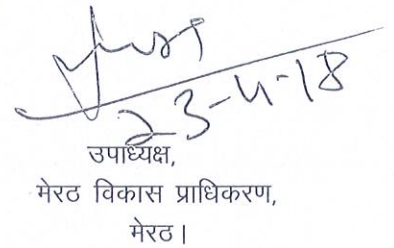 23-4-18
उपाध्यक्ष,
मेरठ विकास प्राधिकरण,
मेरठ।